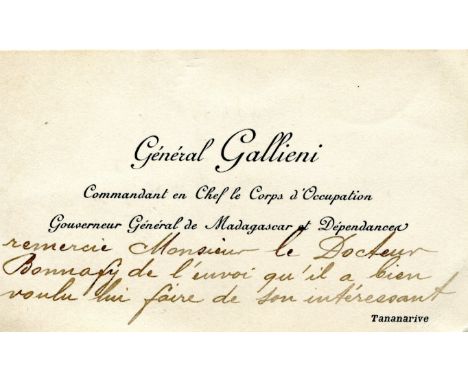 Général Gallieni
Commandant en Chef le Corps d'Occupation
Gouverneur Général de Madagascar et Dépendances
remercie Monsieur le Docteur
Bonnafy de l'envoi qu'il a bien
voulu lui faire de son intéressant
Tananarive